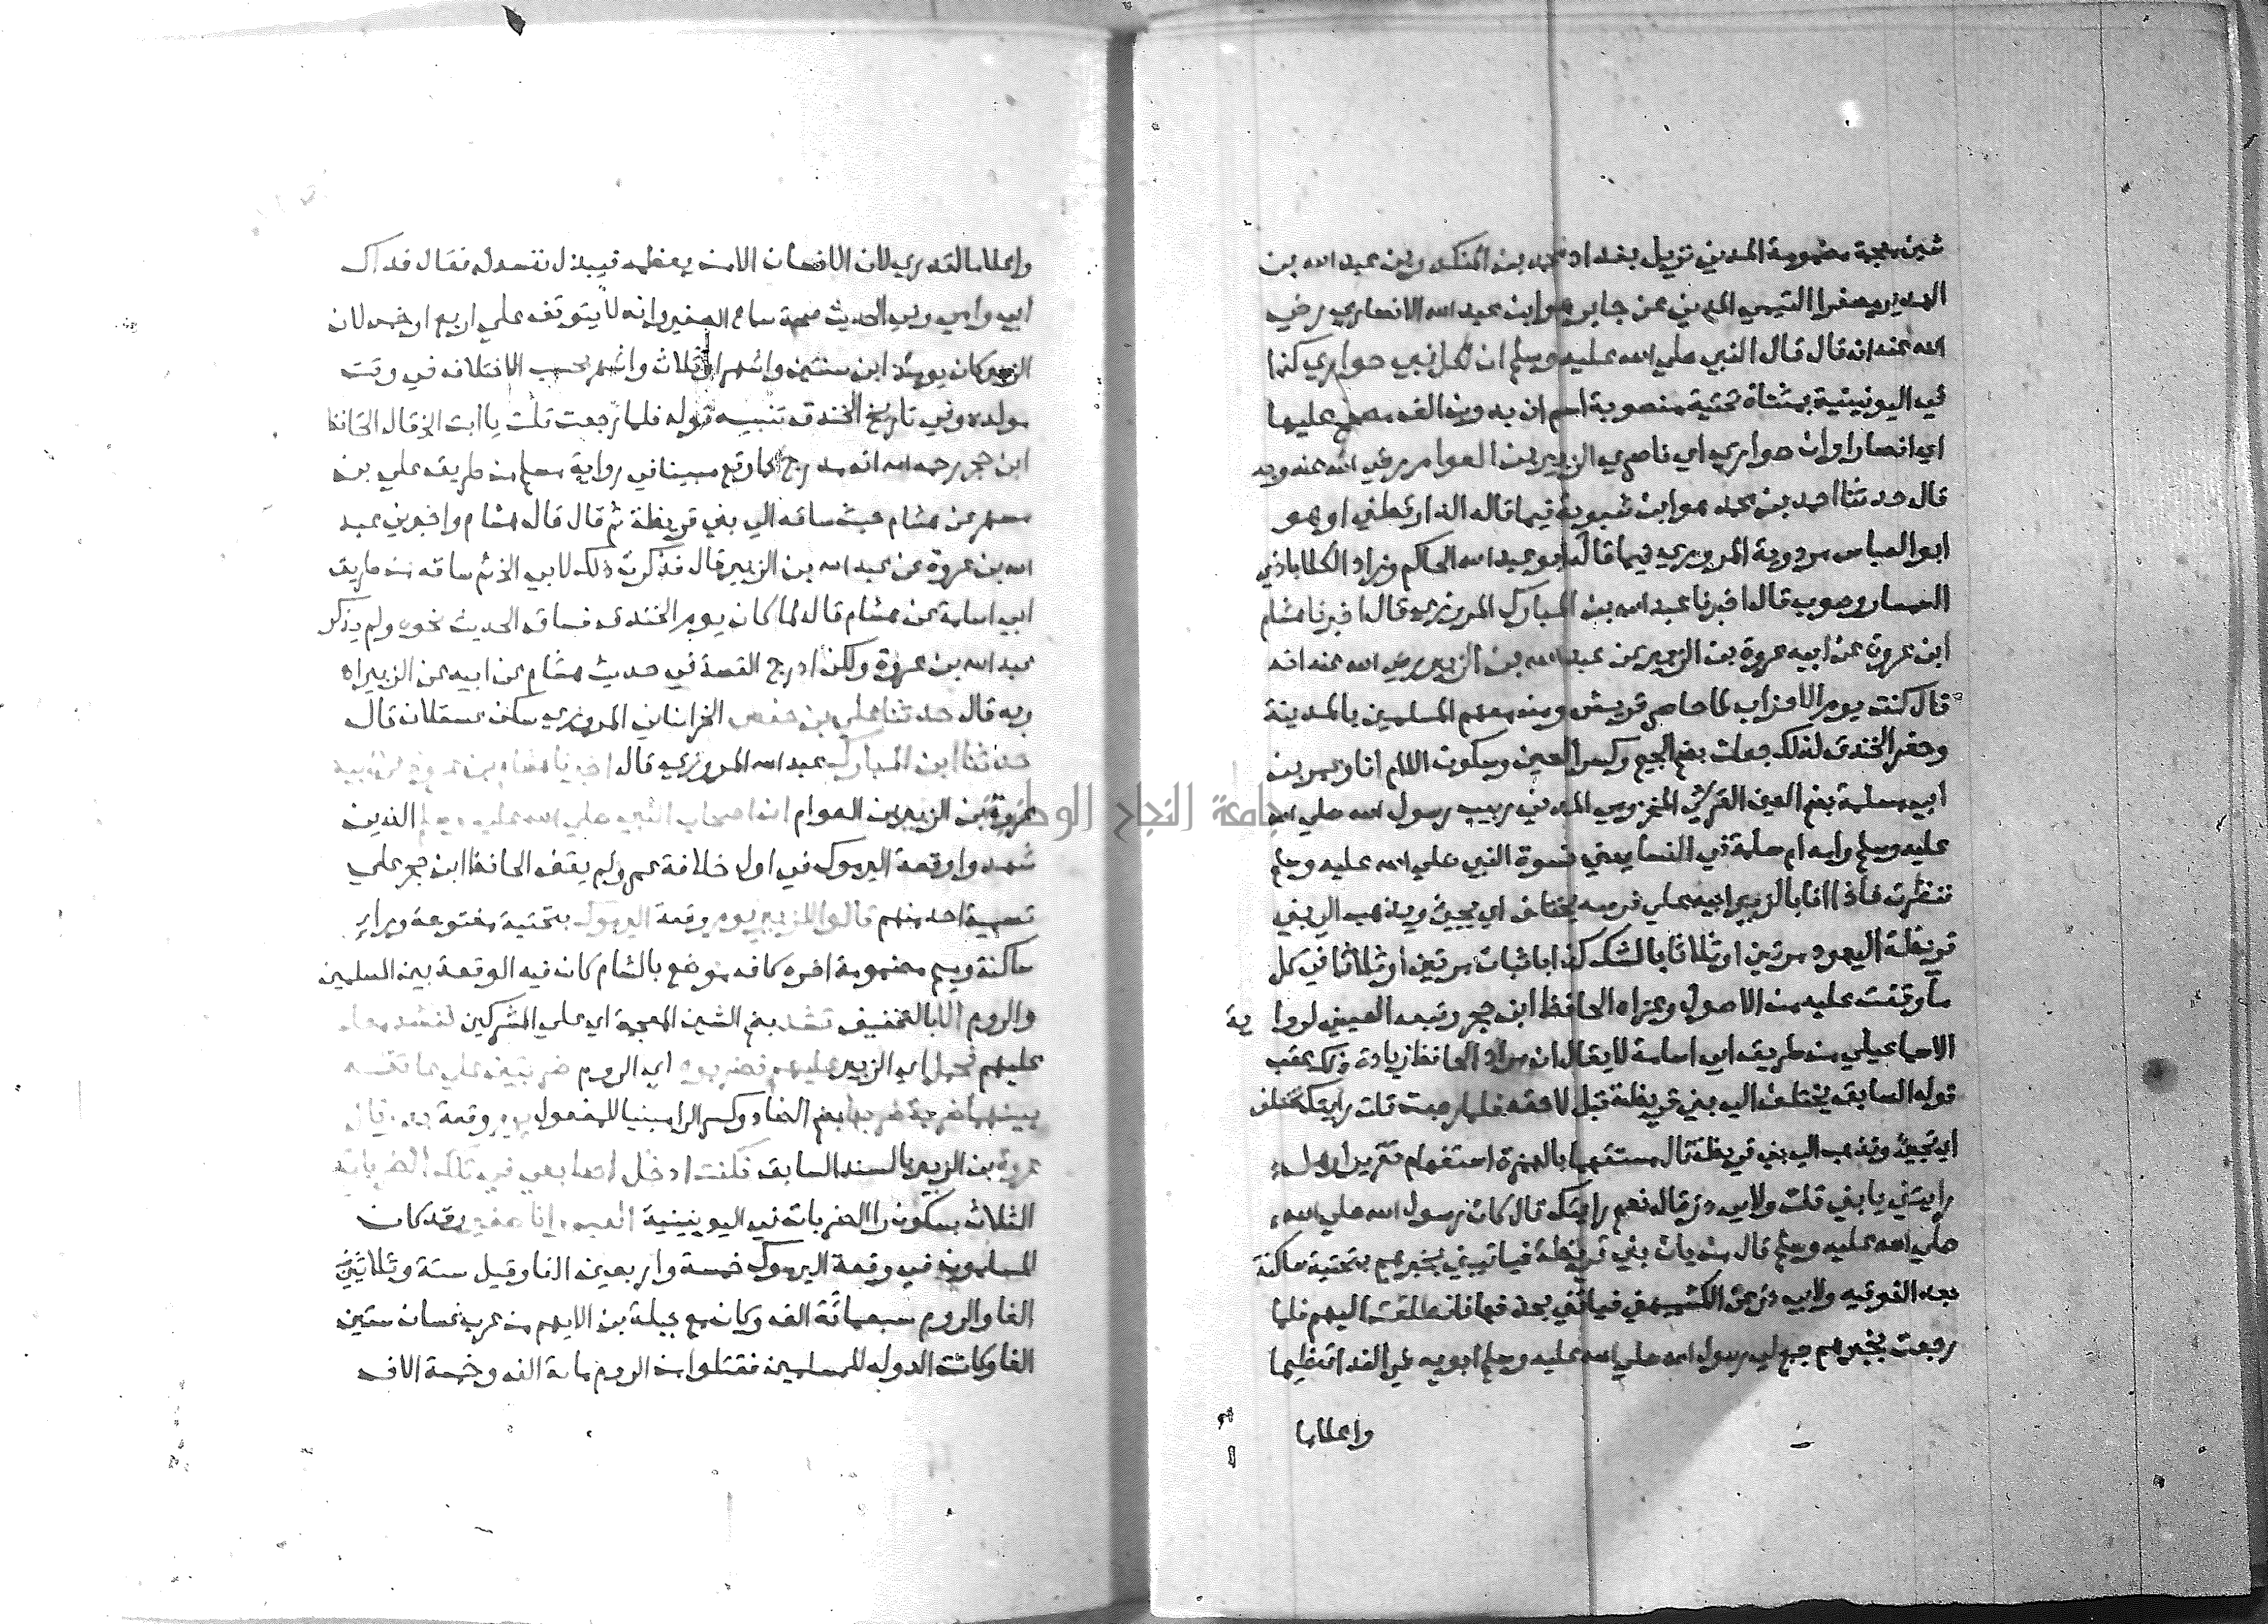 شين معجمة مضمومة المدني نزيل بغداد عن محمد بن المنكدر بن عبد الله بن
الهدير مصغرا التيمي المدني عن جابر هو ابن عبد الله الانصاري رضي
الله عنه انه قال قال النبي صلي الله عليه وسلم ان لكل نبي حواري كذا
في اليونينية بمثناة تحتية منصوبة اسم ان بدون الف مصحح عليها
اي انصارا وان حواري اي ناصري الزبير بن العوام رضي الله عنه وبه
قال حدثنا احمد بن محمد هو ابن شبوية فيما قاله الدارقطني او هو
ابو العباس مردوية المروزي فيما قاله ابو عبد الله الحاكم وزاد الكلاباذي
السمسار وصوب قال اخبرنا عبد الله بن المبارك المروزي قال اخبرنا هشام
ابن عروة عن ابيه عروة بن الزبير عن عبد الله بن الزبير رضي الله عنه انه
قال كنت يوم الاحزاب لما حاصر قريش ومن معهم المسلمين بالمدينة
وحفر الخندق لذلك جعلت بضم الجيم وكسر العين وسكون اللام انا وعمر بن
ابي سلمة بفتح العين القرشي المخزومي المدني ربيب رسول الله صلي الله
عليه وسلم وامه ام سلمة في النسا يعني نسوة النبي صلي الله عليه وسلم
فنظرت فاذا انا بالزبير ابيه علي فرسه يختلف اي يجيئ ويذهب الي بني
قريظة اليهود مرتين او ثلاثا بالشك كذا باثبات مرتين او ثلاثا في كل
ما وقفت عليه من الاصول وعزاه الحافظ ابن حجر وتبعه العيني لرواية
الاسماعيلي من طريق ابي اسامة لا يقال ان مراد الحافظ زيادة ذلك عقب
قوله السابق يختلف الي بني قريظة قبل لاحقه فلما رجعت قلت رايتك تختلف
اي تجيئ وتذهب الي بني قريظة قال مستفهما بالهمزة استفهام تقرير او هل
رايتني يا بني قلت ولابي ذر قال نعم رايتك قال كان رسول الله صلي الله
صلي الله عليه وسلم قال من يات بني قريظة فياتيني بخبرهم بتحتية ساكنة
بعد الفوقيه ولابي ذر عن الكشميهني فياتني بحذفها فانطلقت اليهم فلما
رجعت بخبرهم جمع لي رسول الله صلي الله عليه وسلم ابويه في الفدا تعظيما
واعلاما
واعلاما لقدري لان الانسان الا من يعظمه فيبذل نفسه له فقال فداك
ابي وامي وفي الحديث صحة سماع الصغير وانه لا يتوقف علي اربع او خمس لان
الزبير كان يومئذ ابن سنتين واشهر او ثلاث واشهر بحسب الاختلاف في وقت
مولده وفي تاريخ الخندق تنبيه قوله فلما رجعت قلت يا ابت الخ قال الحافظ
ابن حجر رحمه الله انه مدرج كما وقع مبينا في رواية مسلم من طريق علي بن
مسهر عن هشام حيث ساقه الي بني قريظة ثم قال قال هشام واخبرني عبد
الله بن عروة عن عبد الله بن الزبير قال فذكرت ذلك لابي الخ ثم ساقه من طريق
ابي اسامة عن هشام قال لما كان يوم الخندق فساق الحديث نحوه ولم يذكر
عبد الله بن عروة ولكن ادرج القصة في حديث هشام عن ابيه عن الزبير اه
وبه قال حدثنا علي بن حفص الخراساني المروزي سكن عسقلان قال
حدثنا ابن المبارك عبد الله المروزي قال اخبرنا هشام بن عروة عن ابيه
عروة بن الزبير بن العوام ان اصحاب النبي صلي الله عليه وسلم الذين
شهدوا وقعة اليرموك في اول خلافة عمر ولم يقف الحافظ ابن حجر علي
تسمية احد منهم قالوا للزبير يوم وقعة اليرموك بتحتية مفتوحة وراء
ساكنة وميم مضمومة اخره كاف موضع بالشام كان فيه الوقعة بين المسلمين
والروم الا بالتخفيف تشد بضم الشين المعجمة اي علي المشركين فنشد معك
عليهم فحمل اي الزبير عليهم فضربوه اي الروم ضربتين علي عاتقه
بينهما ضربة ضربها بضم الضاد وكسر الرا مبنيا للمفعول يوم وقعة بدر قال
عروة بن الزبير بالسند السابق فكنت ادخل اصابعي في تلك الضربات
الثلاث بسكون را الضربات في اليونينية العب وانا صغير وقد كان
المسلمون في وقعة اليرموك خمسة واربعين الفا وقيل ستة وثلاثين
الفا والروم سبعمائة الف وكان مع جبلة بن الايهم من عرب غسان ستين
الفا وكانت الدوله للمسلمين فقتلوا من الروم ماىة الف وخمسة الاف
جامعة النجاح الوطنية